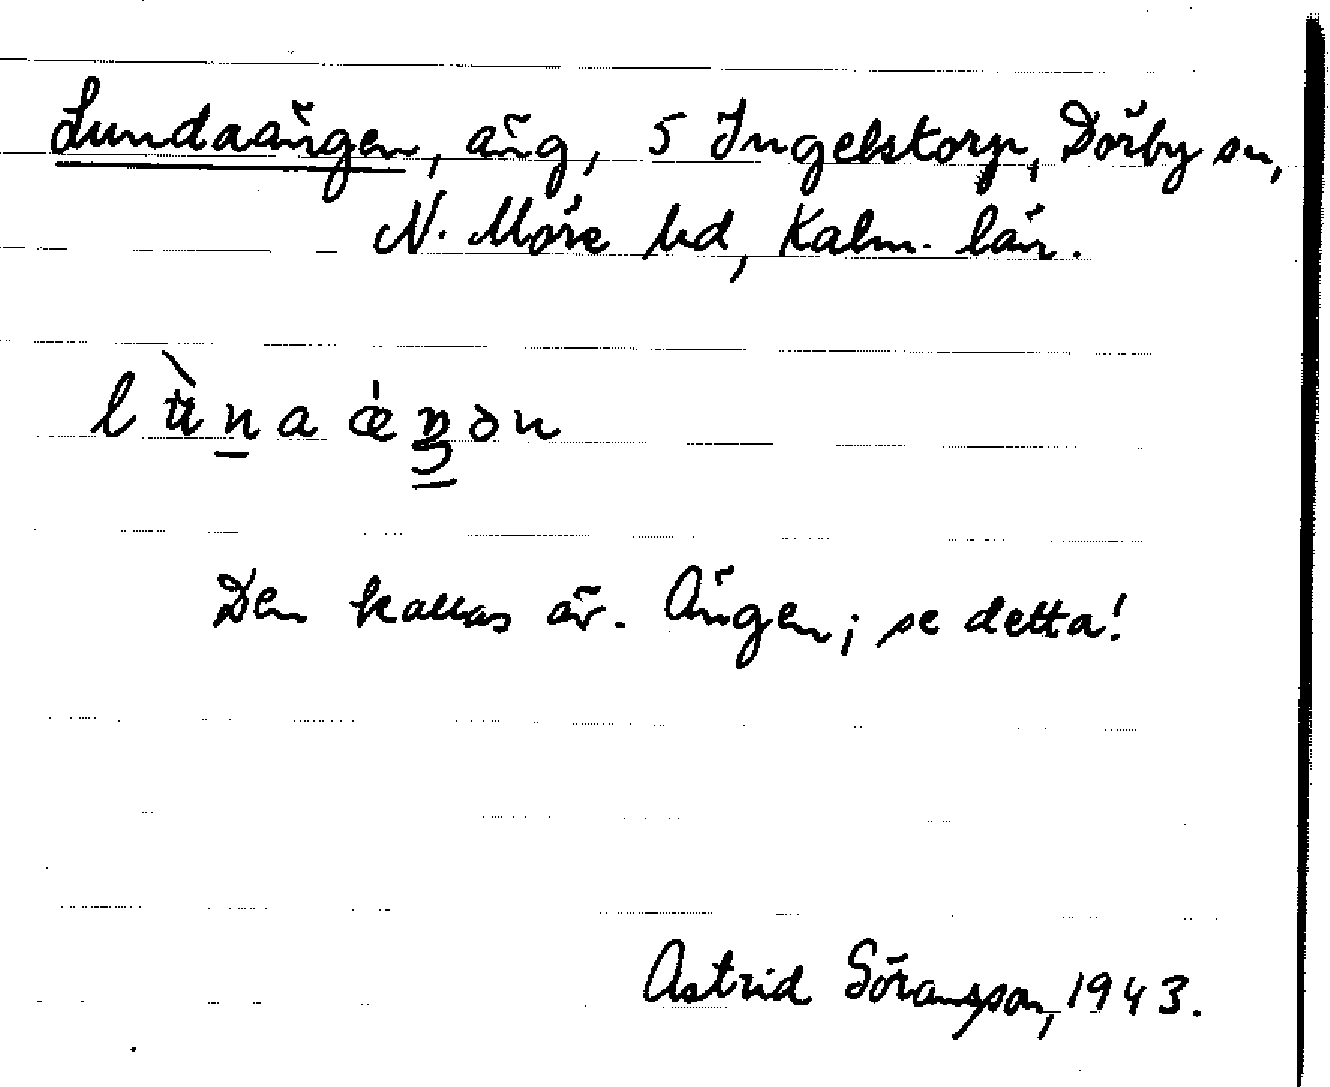 Lundaängen, äng, 5 Ingelstorp, Dörby sn,
N. Möre hd, Kalm. län.
Den kallas äv. Ängen; se detta!
Astrid Göransson, 1943.